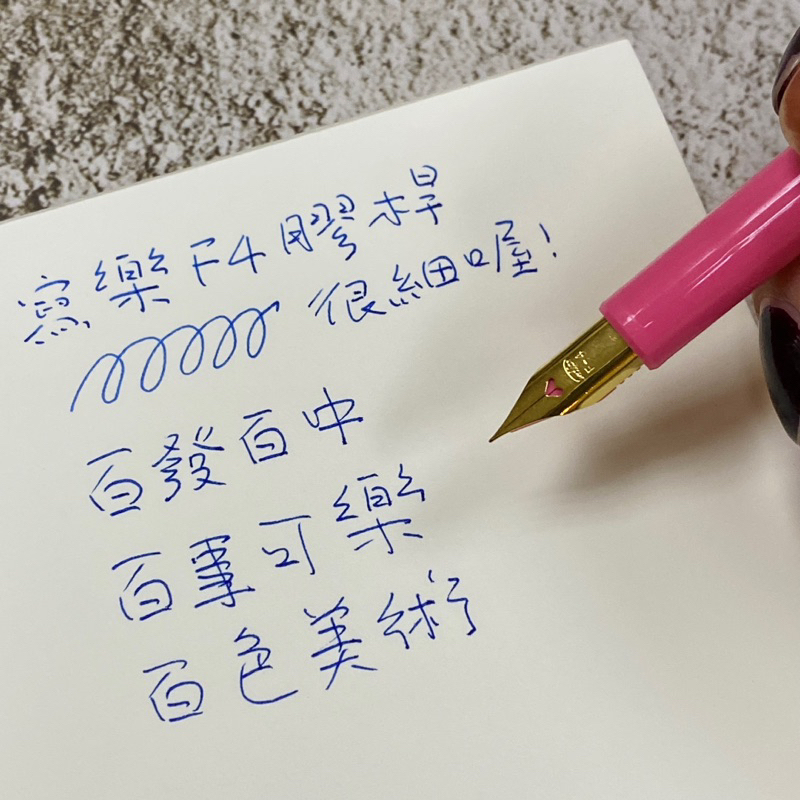 寫樂 F4 膠桿
很細喔!
百發百中
百事可樂
百色美術